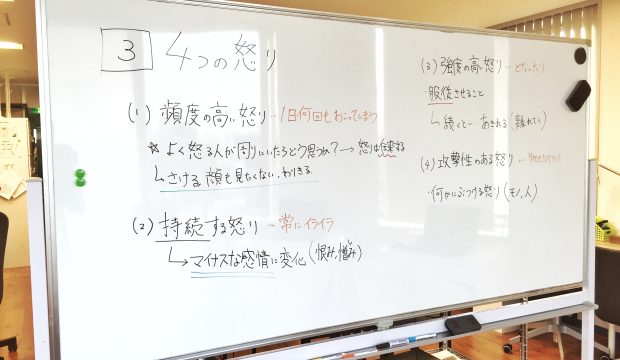 3 4つの怒り
(1) 頻度の高い怒り…1日何回もおこってしまう
☆よく怒る人が周りにいたらどう思うか?→怒りは伝染する
↳さける、顔も見たくない、わりきる
(2) 持続する怒り…常にイライラ
↳マイナスな感情に変化(恨み、憎しみ)
(3) 強度の高い怒り…
・服従させること
↳続くと…あきれる(離れていく)
(4) 攻撃性のある怒り…
・何かにぶつける怒り(モノ、人)